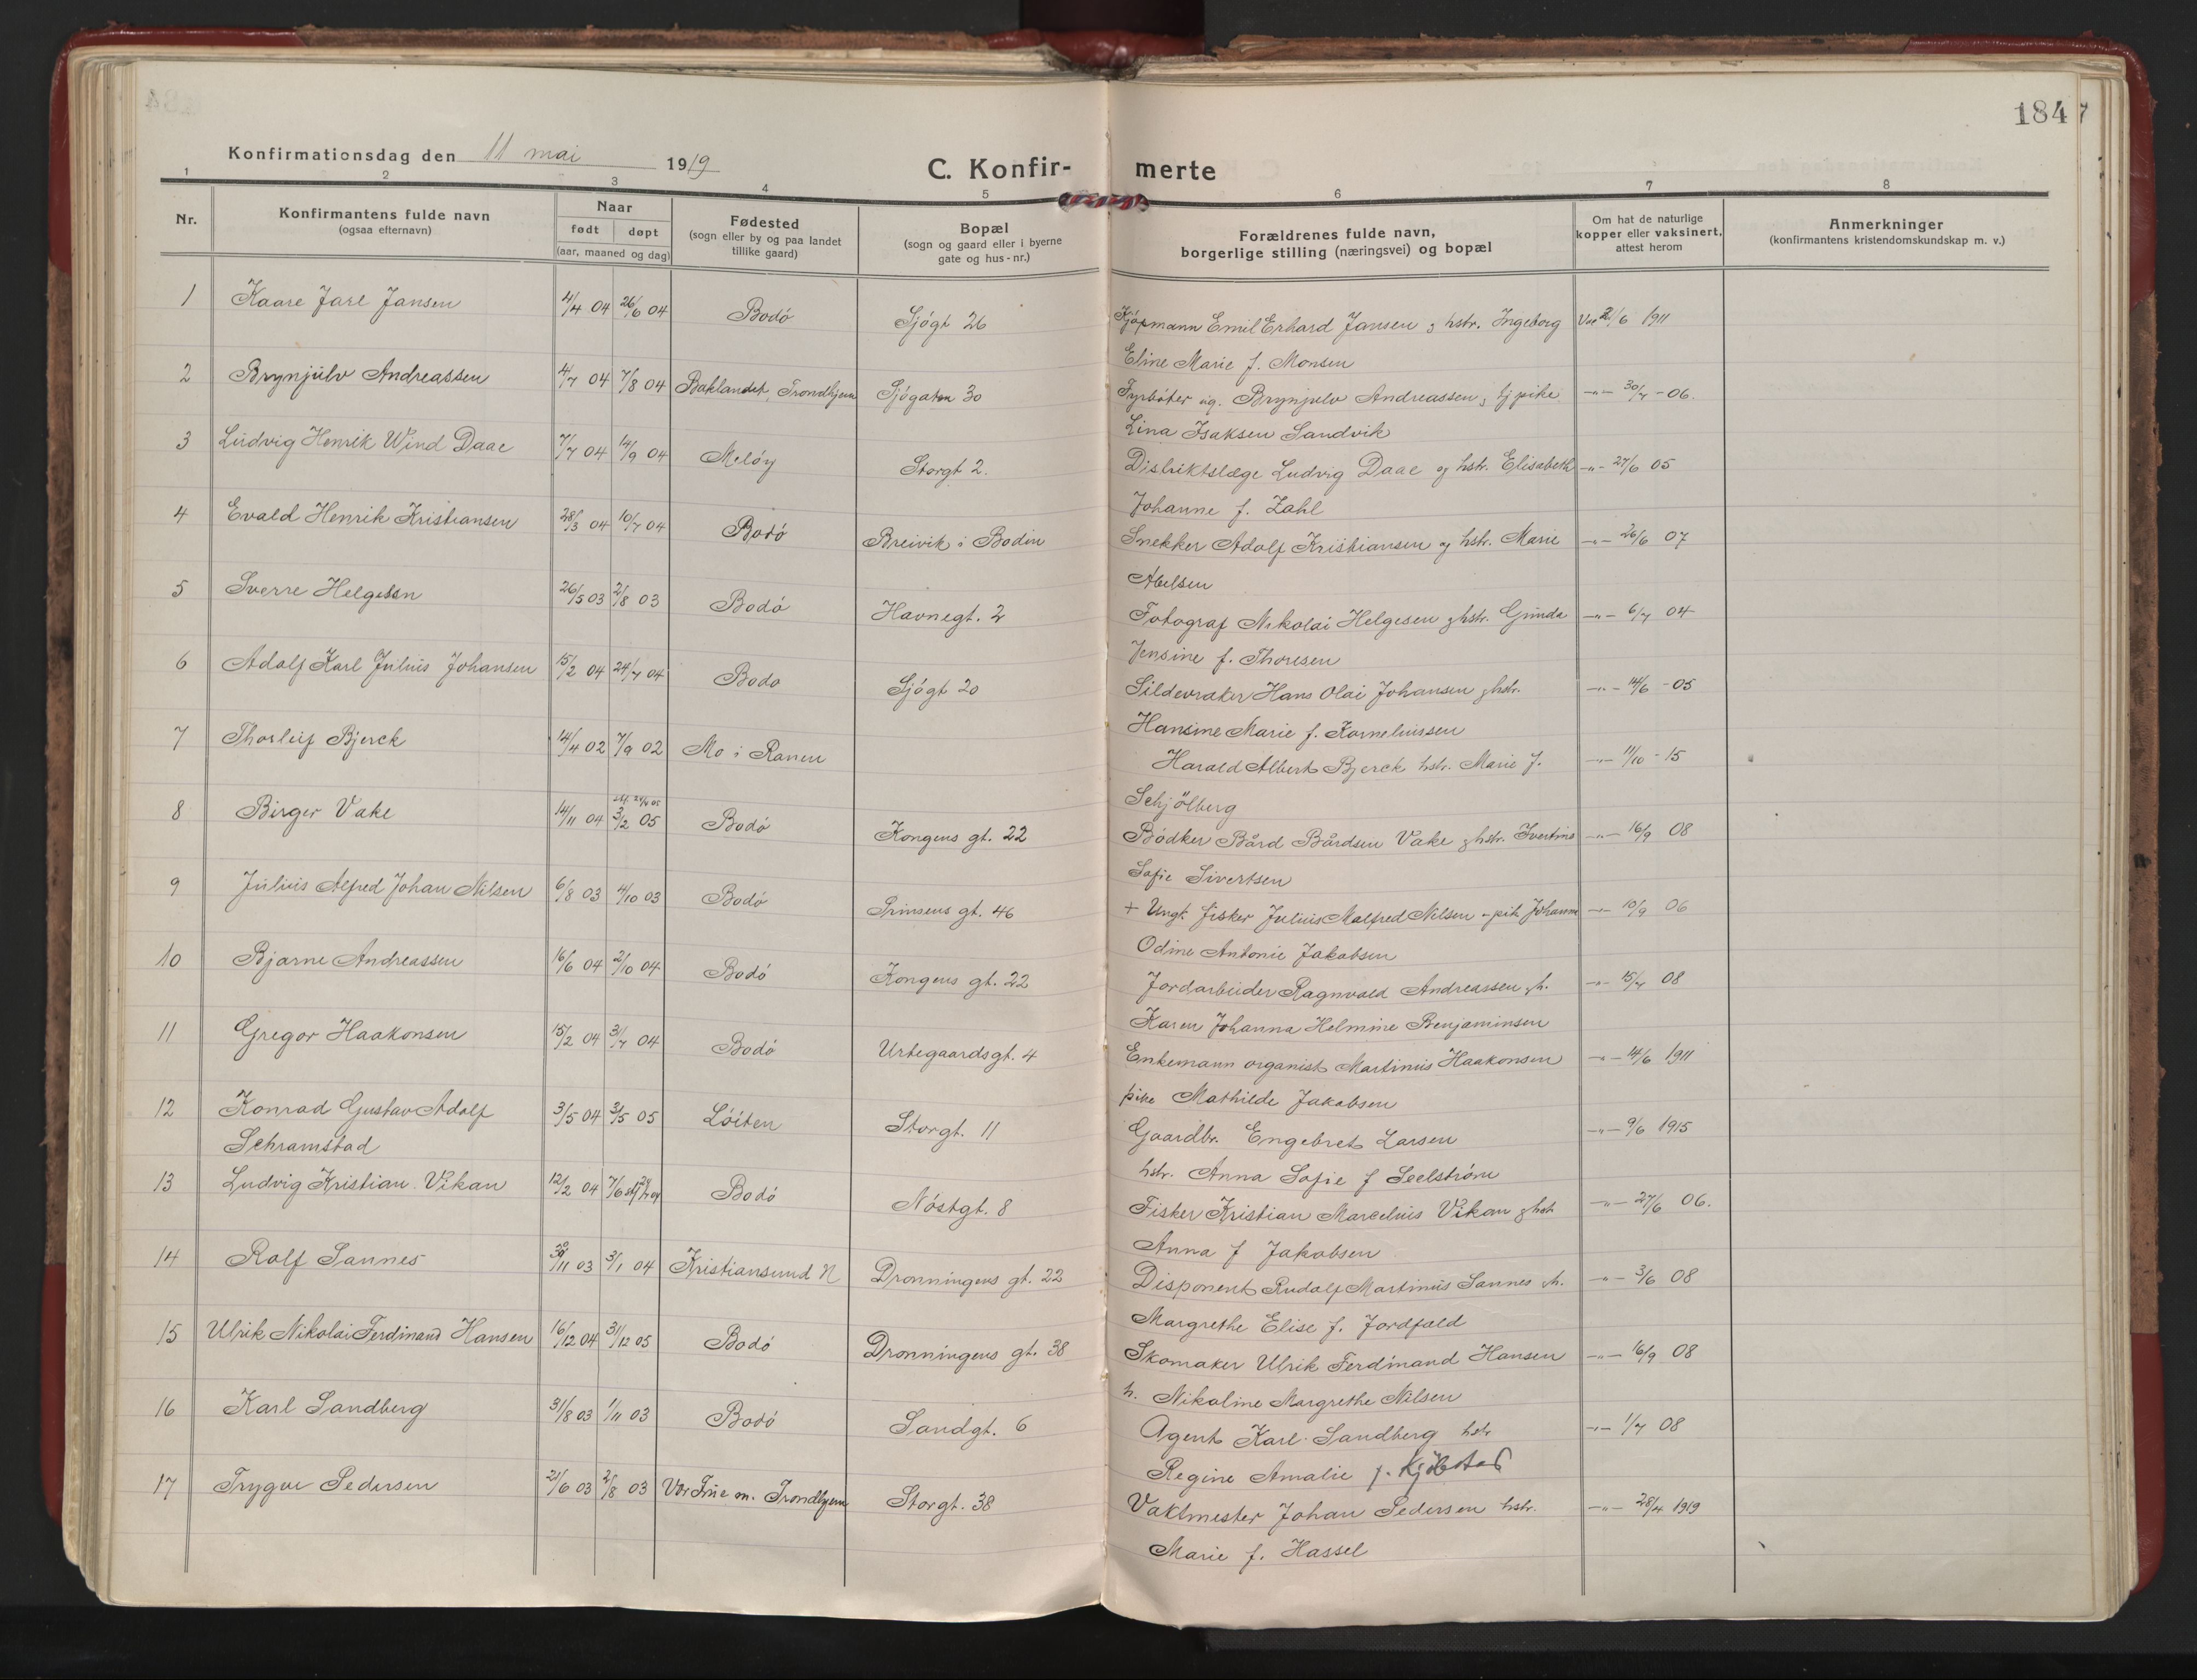 184
Konfirmationsdag den 11 mai 1919
C. Konfir- merte
1 2 3 4 5 6 7 8
Nr. Konfirmantens fulde navn (ogsaa efternavn) Naar født døpt (aar, maaned og dag) Fødested (sogn eller by og paa landet tillike gaard) Bopæl (sogn og gaard eller i byerne gate og hus-nr.) Forældrenes fulde navn, borgerlige stilling (næringsvei) og bopæl Om hat de naturlige kopper eller vaksinert, attest herom Anmerkninger (konfirmantens kristendomskundskap m. v.)
1 Kaare Jarl Jansen 4/4 04 26/6 04 Bodó Sjógt 26 Kjópmann Emil Erhard Jansen og hstr. Ingeborg Vac 21/6 1911
Eline Marie f. Monsen
2 Brynjulv Andreassen 4/7 04 7/8 04 Baklandet, Trondhjem Sjógaten 30 Fyrbóter ug. Brynjulv Andreassen, tj pike -"- 30/7 -06.
Lina Isaksen Sandvik
3 Ludvig Henrik Wind Daae 7/7 04 14/9 04 Melóy Storgt 2. Distriktslæge Ludvig Daae og hstr. Elisabeth -"- 27/6 05
Johanne f. Zahl
4 Evald Henrik Kristiansen 28/3 04 10/7 04 Bodó Breivik i Bodin Snekker Adolf Kristiansen og hstr. Marie -"- 26/6 07
Abelsen
5 Sverre Helgesen 26/5 03 2/8 03 Bodó Havnegt. 2 Fotograf Nikolai Helgesen og hstr. Gunda -"- 6/7 04
Jensine f. Thoresen
6 Adolf Karl Julius Johansen 15/2 04 24/7 04 Bodo Sjógt 20 Sildevraker Hans Olai Johansen og hstr. -"- 14/6 -05
Hansine Marie f. Korneliussen
7 Thorleif Bjerck 14/4 02 7/9 02 Mo i Ranen Harald Albert Bjerck hstr. Marie f. -"- 11/10 -15
Schjölberg
8 Birger Vake 14/11 04 3/2 05 Bodó Kongens gt. 22 Bódker Bård Bårdsen Vake og hstr. Ivertine -"- 16/9 08
Sofie Sivertsen
9 Julius Alfred Johan Nilsen 6/8 03 4/10 03 Bodó Prinsens gt. 46 + Ungk. fisker Julius Malfred Nilsen - pik. Johanne -"- 10/9 06
Odine Antonie Jakobsen
10 Bjarne Andreassen 16/6 04 2/10 04 Bodó Kongens gt. 22 Jordarbeider Ragnvald Andreassen og h. -"- 15/7 08
Karen Johanna Helmine Benjaminsen
11 Gregor Haakonsen 15/2 04 3/7 04 Bodó Urtegaardsgt. 4 Enkemann organist Martinius Haakonsen -"- 14/6 1911
pike Mathilde Jakobsen
12 Konrad Gustav Adolf 3/5 04 3/5 05 Lóiten Storgt. 11 Gaardbr. Engebret Larsen -"- 9/6 1915
Schramstad hstr. Anna Sofie f Seelstróm
13 Ludvig Kristian Vikan 12/2 04 7/6 Bodó Nóstgt. 8 Fisker Kristian Marcelius Vikan og hstr -"- 27/6 06.
Anna f Jakobsen
14 Rolf Sannes 30/11 03 3/1 04 Kristiansund N Dronningens gt. 22 Disponent Rudolf Martinius Sannes h. -"- 3/6 08
Margrethe Elise f. Jordfald
15 Ulrik Nikolai Ferdinand Hansen 16/12 04 31/12 05 Bodó Dronningens gt. 38 Skomaker Ulrik Ferdinand Hansen -"- 16/9 08
h. Nikoline Margrethe Nilsen
16 Karl Sandberg 31/8 03 1/11 03 Bodó Sandgt. 6 Agent Karl Sandberg hstr -"- 1/7 08
Regine Amalie f. Kjölstad
17 Trygve Pedersen 21/6 03 2/8 03 Vor Frue m. Trondhjem Storgt. 38 Vaktmester Johan Pedersen hstr. -"- 28/4 1919
Marie f. Hassel